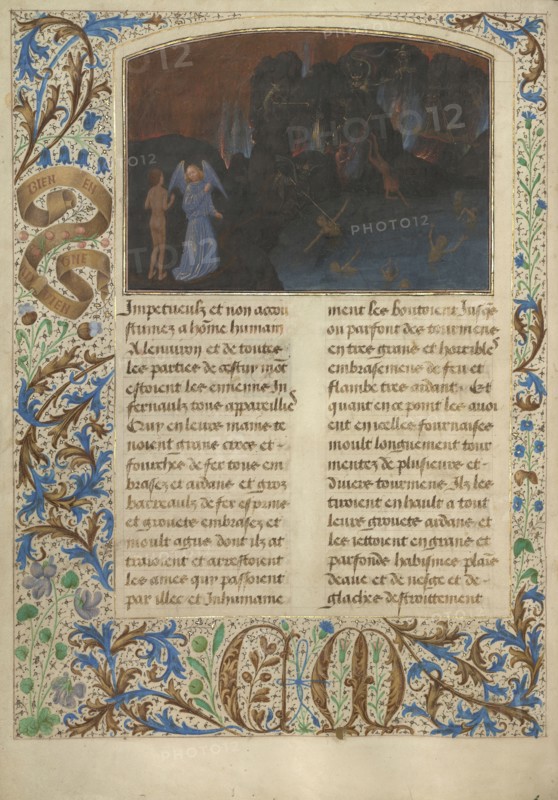 BIEN EN
Impetueulx et non accou
stumez a home humain
A lenuiron et de toutes
les parties de cestuy mot
estoient les ennemis In
fernaulx tous appareillies
Quy en leurs mains te
noient grans crocs et
fourches de fer tous em
brasez et ardans et groz
barreaulx de fer esprins
et grouets embrasez et
moult agus dont ilz at
traioient et arrestoient
les ames quy passoient
par illec et Inhumaine
ment les boutoient Jusqe
ou parfont des tourmens
en tres grans et horribles
embrasemens de feu et
flambe tres ardant Et
quant en ce point les auoi
ent en icelles fournaises
moult longuement tour
mentez de plusieurs et
diuers tourmens Ilz les
tiroient en hault a tout
leurs grouets ardans et
les iettoient en grans et
parfonds habismes plains
deaue et de neige et de
glaches de froittement
C M
PHOTO12
PHOTO12
PHOTO12
PHOTO12
PHOTO12
PHOTO12